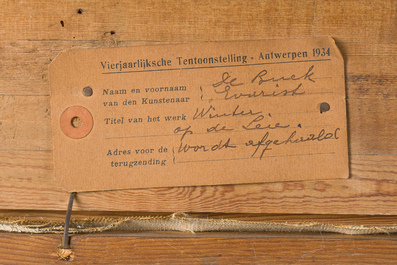 Vierjaarlijksche Tentoonstelling - Antwerpen 1934
Naam en voornaam van den Kunstenaar : De Buck Evarist
Titel van het werk Winter op de Leie.
Adres voor de terugzending : wordt afgehaald